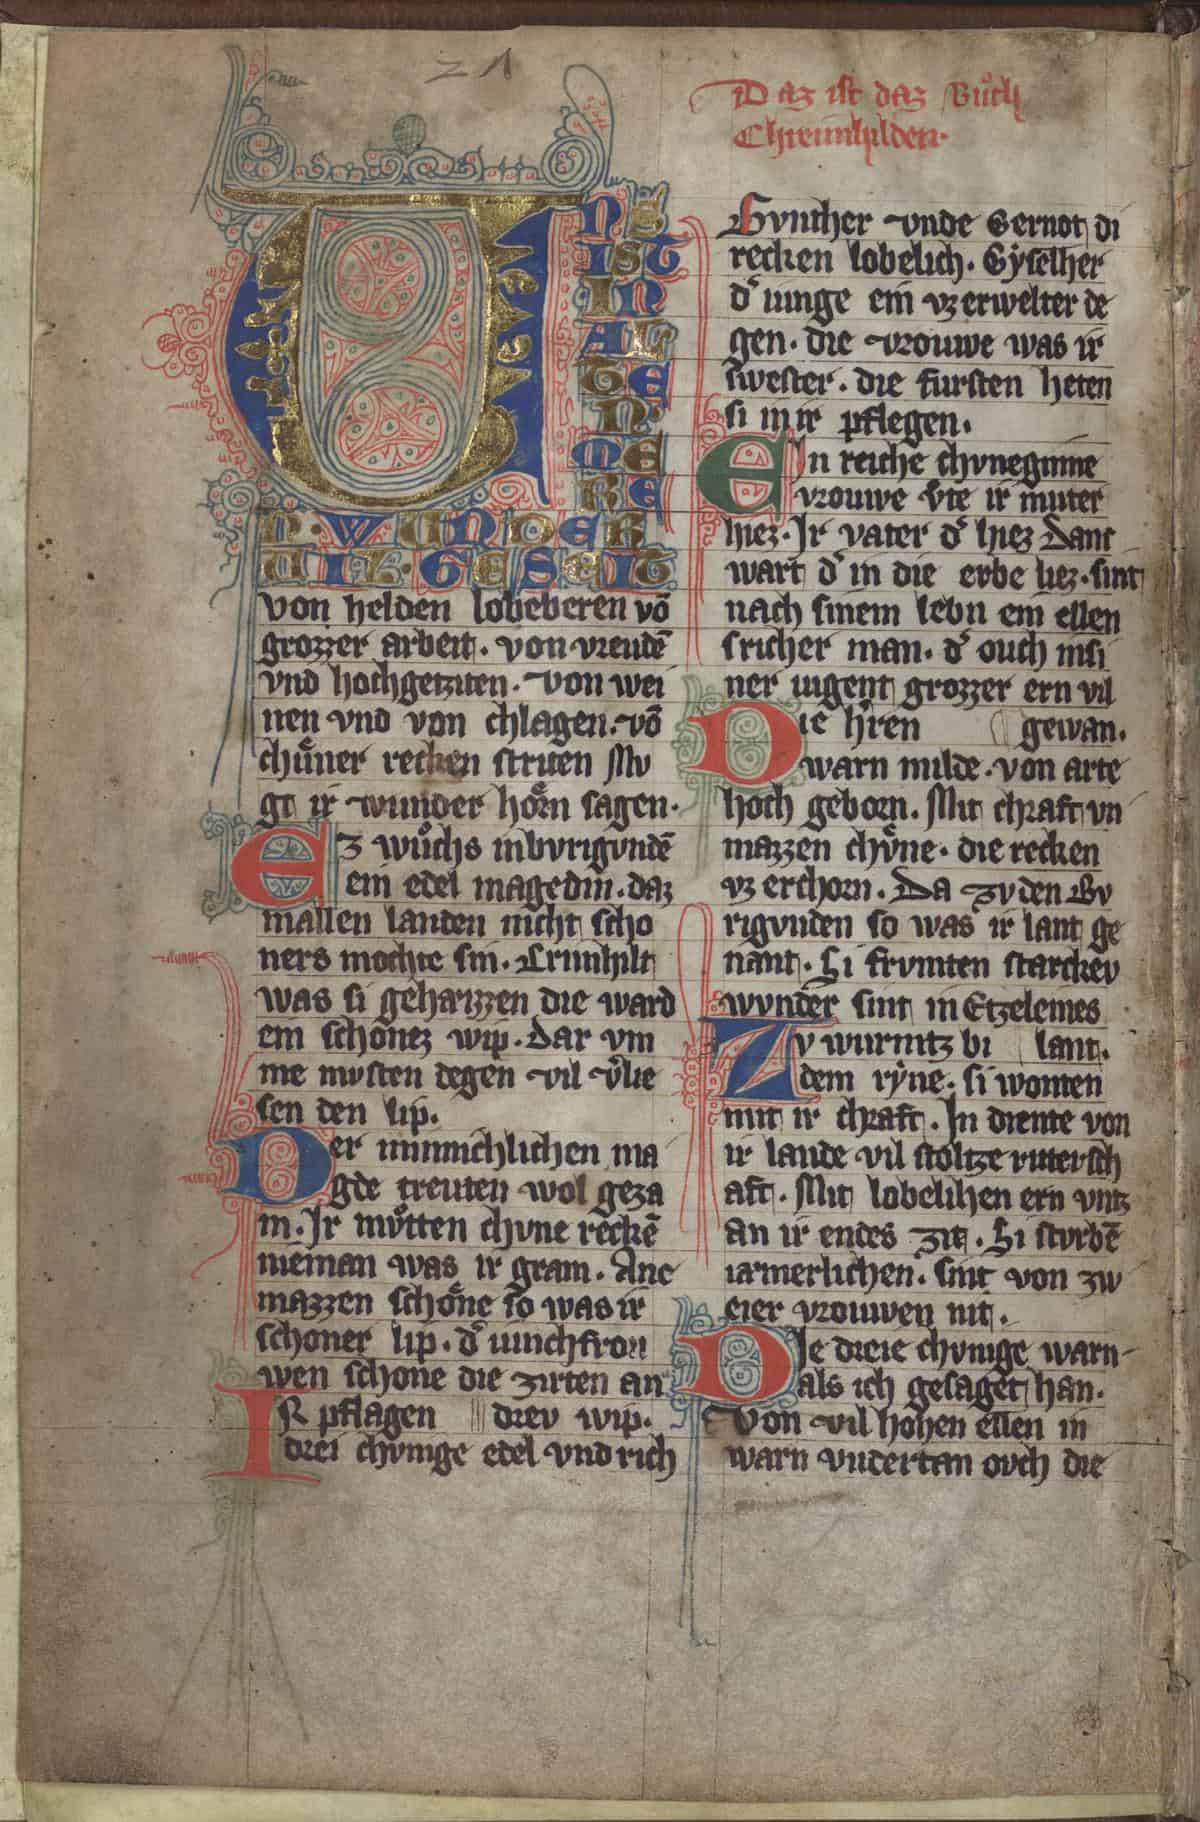 21
Daz ist daz Buͦch
Chreimhilden·
UNS
IST
IN
AL
TE
N
ME
RE
N·WUNDER
UIL·GESEIT
von helden lobeberen võ
grozzer arbeit. von vreudẽ
vnd hochgetziten. von wei
nen vnd von chlagen. võ
chuͤner recken striten Mv
gt ir wunder hoͤrn sagen.
Ez wuͦchs inbvrigvndẽ
ein edel magedin. daz
inallen landen nicht scho
ners mochte sin. Crimhilt
was si geheizzen die ward
ein schonez wip. Dar vm
me mvsten degen vil v̾lie
sen den lip.
Der minnichlichen ma
gde treuten wol geza
m. Ir muͦtten chvne reckẽ
nieman was ir gram. Ane
mazzen schoͤne so was ir
schoner lip. d̾ iunchfrou
wen schone die zirten an
Ir pflagen || drev wip.
drei chvnige edel vnd rich
Gvnther vnde Gernot di
recken lobelich. Gyselher
d̾ iunge ein vz erwelter de
gen. die vrouwe was ir
swester. die fursten heten
si in ir pflegen.
Ein reiche chvneginne
vrouwe vͦte ir muter
hiez. Ir vater d̾ hiez Danc
wart d̾ in die erbe liez. sint
nach sinem lebn ein ellen
sricher man. d̾ ouch insi
ner iugent grozzer ern vil
Die h̾ren || gewan.
warn milde. von arte
hoch geborn. Mit chraft vn
mazzen chvͤne. die recken
vz erchorn. Da zv den Bv
rigvnden so was ir lant ge
nant. Si frvmten starckev
wvnder sint in Etzeleines
Zv wurmtz bi || lant.
dem ryne. si wonten
mit ir chraft. In diente von
ir lande vil stoltze ritersch
aft. Mit lobelihen ern vntz
an ir endes zit. Si stvrbẽ
iarmerlichen. sint von zw
eier vrouwen nit.
Die dreie chvnige warn
als ich gesaget han.
Von vil hohen ellen in
warn vndertan ovch die